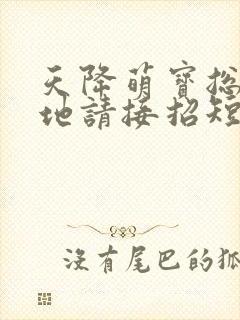 天降萌寶総
地請接招短
沒有尾巴的狐